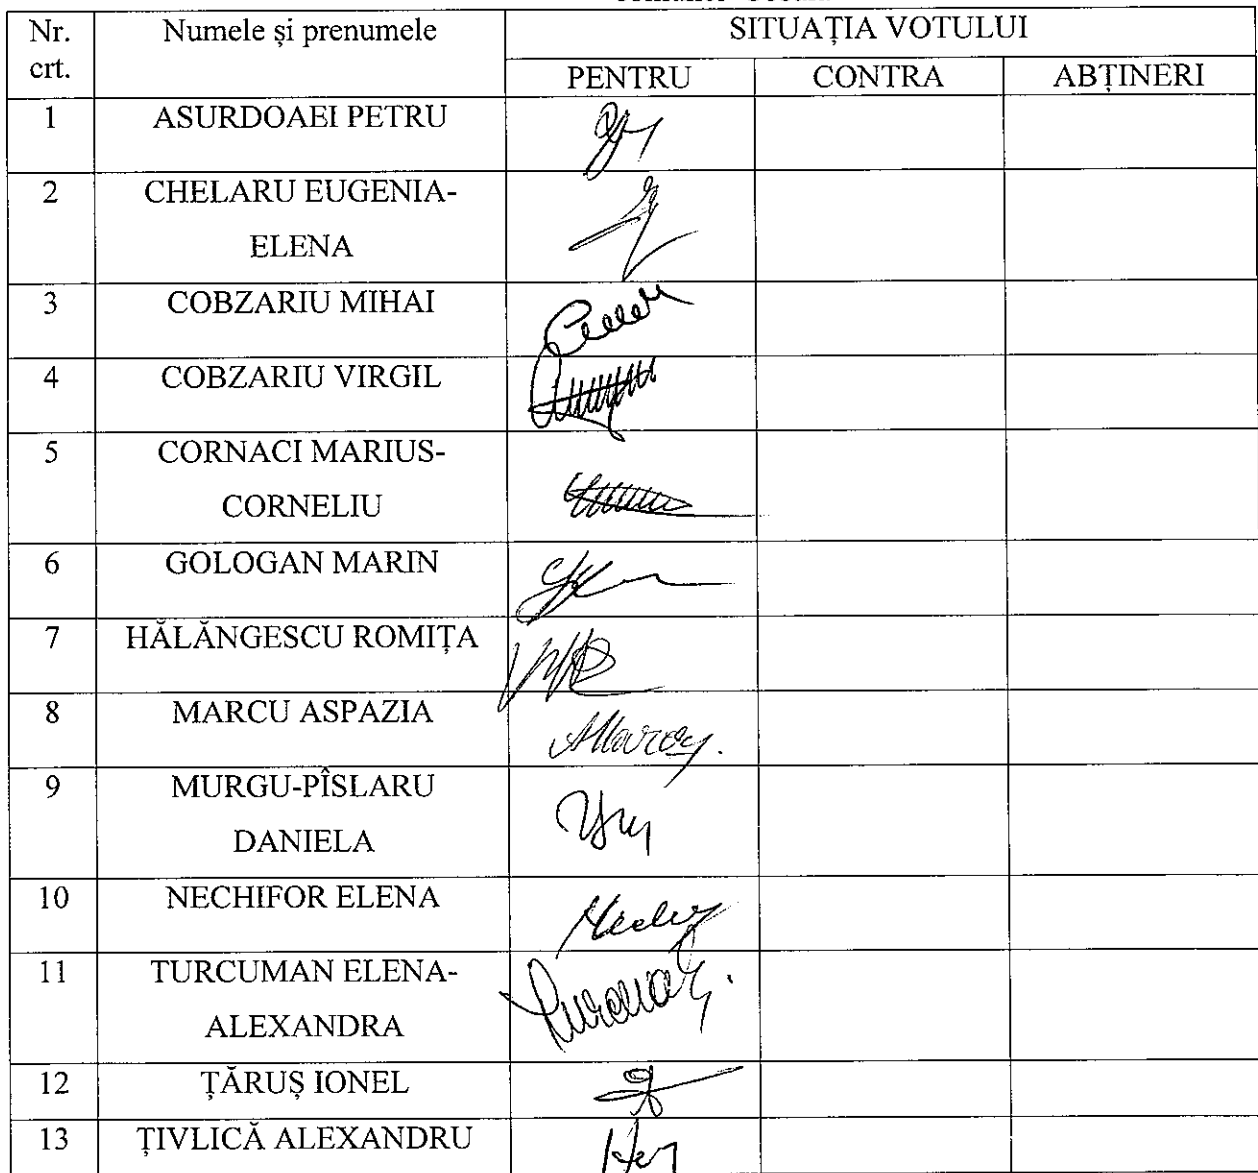 Nr. Numele și prenumele SITUAȚIA VOTULUI
crt. PENTRU CONTRA ABȚINERI
1 ASURDOAEI PETRU
2 CHELARU EUGENIA-
ELENA
3 COBZARIU MIHAI
4 COBZARIU VIRGIL
5 CORNACI MARIUS-
CORNELIU
6 GOLOGAN MARIN
7 HĂLĂNGESCU ROMIȚA
8 MARCU ASPAZIA
9 MURGU-PÎSLARU
DANIELA
10 NECHIFOR ELENA
11 TURCUMAN ELENA-
ALEXANDRA
12 ȚĂRUȘ IONEL
13 ȚIVLICĂ ALEXANDRU